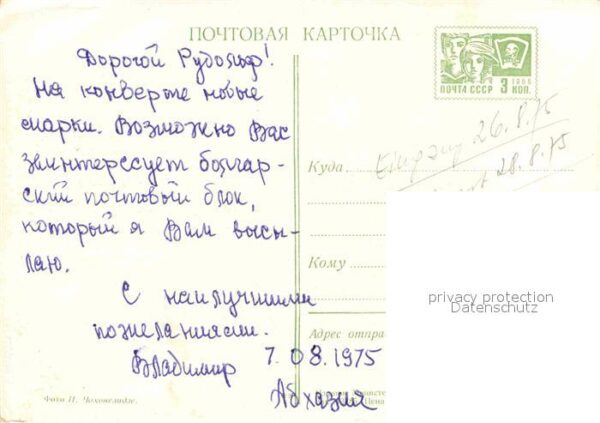 ПОЧТОВАЯ КАРТОЧКА
Дорогой Рудольф!
На конверте новые
марки. Возможно Вас
заинтересует болгар-
ский почтовый блок,
который я Вам высы-
лаю.
С наилучшими
пожеланиями.
Владимир 7.08.1975
Абхазия
ПОЧТА СССР 3 КОП.
1966
Eingang 26.8.75
28.8.75
Куда
Кому
Адрес отправ
privacy protection
Datenschutz
Фото И. Чохонелидзе.
Цена